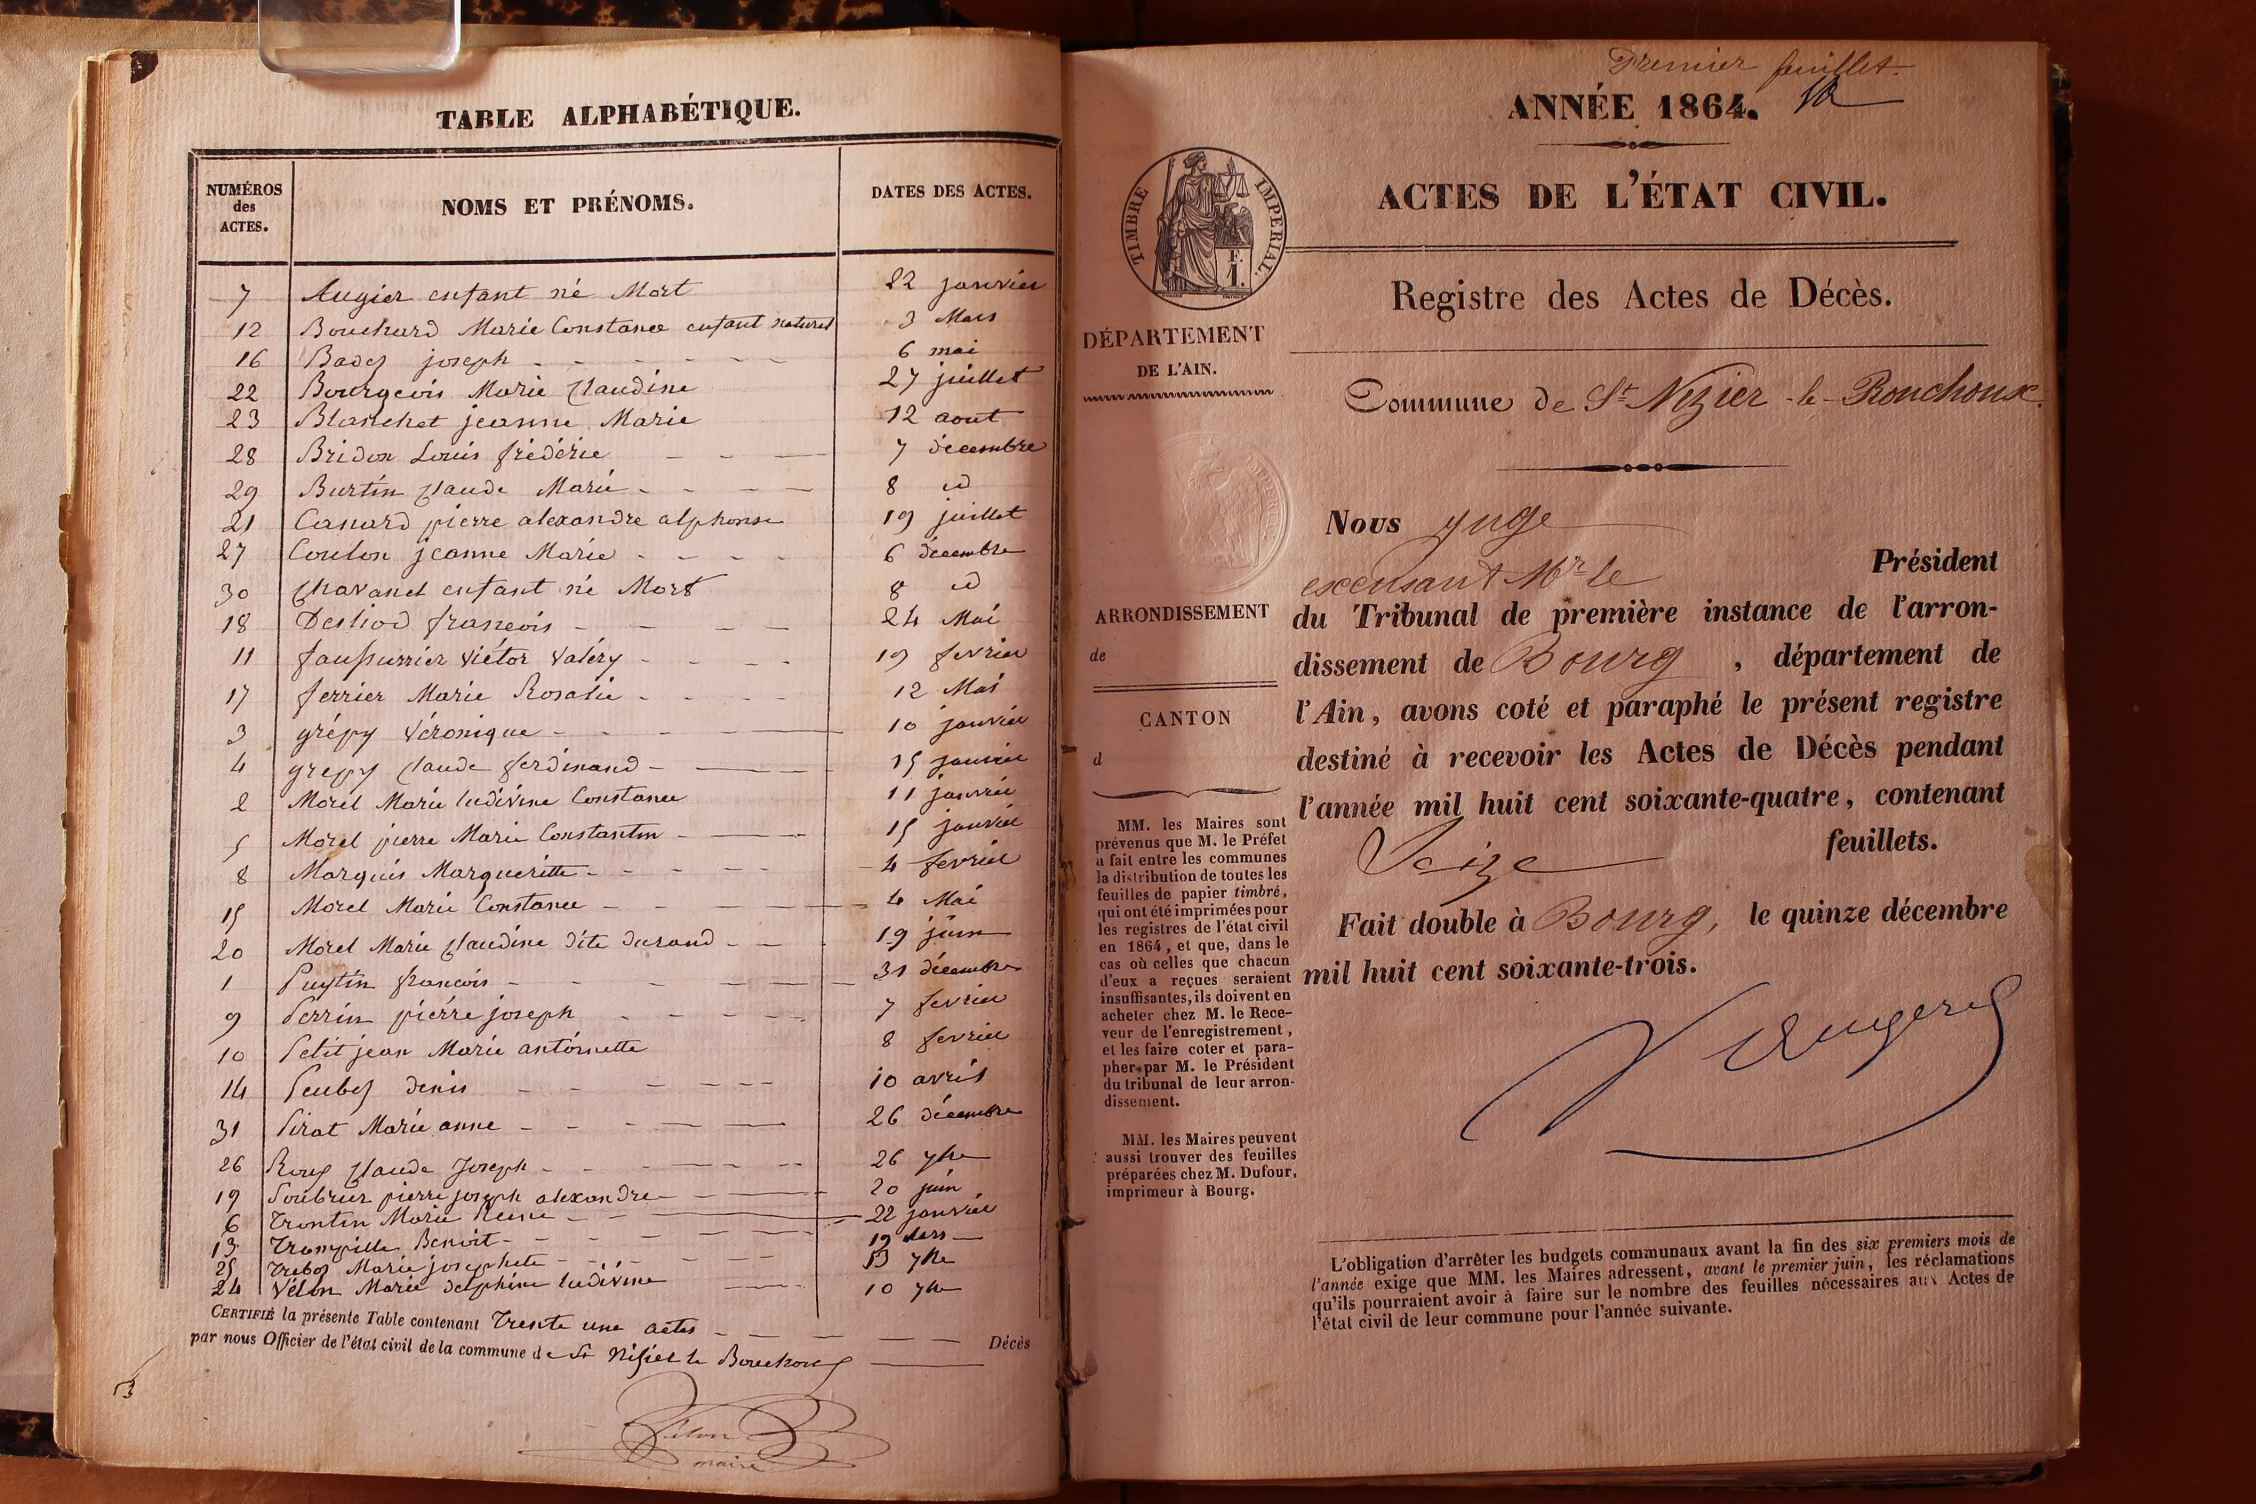 TABLE ALPHABÉTIQUE.
NUMÉROS des ACTES.
NOMS ET PRÉNOMS.
DATES DES ACTES.
7 Augier enfant né Mort 22 janvier
12 Bouchard Marie Constance enfant naturel 3 Mars
16 Badez joseph 6 mai
22 Bourgeois Marie Claudine 27 juillet
23 Blanchet jeanne Marie 12 aout
28 Bridon Louis frédéric 7 décembre
29 Burtin Claude Marie 8 id
21 Canard pierre alexandre alphonse 19 juillet
27 Coulon jeanne Marie 6 décembre
30 Chavanel enfant né Mort 8 id
18 Desliod françois 24 Mai
11 faussurrier Victor Valéry 19 fevrier
17 ferrier Marie Rosalie 12 Mai
3 grépy Véronique 10 janvier
4 grepy Claude ferdinand 15 janvier
2 Morel Marie ludivine Constance 11 janvier
5 Morel pierre Marie Constantin 15 janvier
8 Marquis Margueritte 4 fevrier
15 Morel Marie Constance 4 Mai
20 Morel Marie Claudine dite durand 19 juin
1 Puytin françois 31 décembre
9 Perrin pierre joseph 7 fevrier
10 Petit jean Marie antoinette 8 fevrier
14 Peubez denis 10 avril
31 Pirat Marie anne 26 décembre
26 Roux Claude Joseph 26 7bre
19 Soubrier pierre joseph alexandre 20 juin
6 Trontin Marie Reine 22 janvier
13 Trompille Benoit 19 Mars
25 Treboz Marie josephete 13 7bre
24 Vélon Marie delphine ludivine 10 7bre
CERTIFIÉ la présente Table contenant Trente une actes
Décès
par nous Officier de l'état civil de la commune de St Nizier le Bouchoux
Vélon
maire
Premier feuillet.
ANNÉE 1864.
ACTES DE L'ÉTAT CIVIL.
TIMBRE IMPERIAL.
F.
1.
Registre des Actes de Décès.
DÉPARTEMENT
DE L'AIN.
Commune de St Nizier-le-Bouchoux.
ARRONDISSEMENT
de
CANTON
d
MM. les Maires sont
prévenus que M. le Préfet
a fait entre les communes
la distribution de toutes les
feuilles de papier timbré,
qui ont été imprimées pour
les registres de l'état civil
en 1864, et que, dans le
cas où celles que chacun
d'eux a reçues seraient
insuffisantes, ils doivent en
acheter chez M. le Rece-
veur de l'enregistrement,
et les faire coter et para-
pher par M. le Président
du tribunal de leur arron-
dissement.
MM. les Maires peuvent
aussi trouver des feuilles
préparées chez M. Dufour,
imprimeur à Bourg.
Nous Juge
excusant Mr le Président
du Tribunal de première instance de l'arron-
dissement de Bourg, département de
l'Ain, avons coté et paraphé le présent registre
destiné à recevoir les Actes de Décès pendant
l'année mil huit cent soixante-quatre, contenant
Seize feuillets.
Fait double à Bourg, le quinze décembre
mil huit cent soixante-trois.
L'obligation d'arrêter les budgets communaux avant la fin des six premiers mois de
l'année exige que MM. les Maires adressent, avant le premier juin, les réclamations
qu'ils pourraient avoir à faire sur le nombre des feuilles nécessaires aux Actes de
l'état civil de leur commune pour l'année suivante.